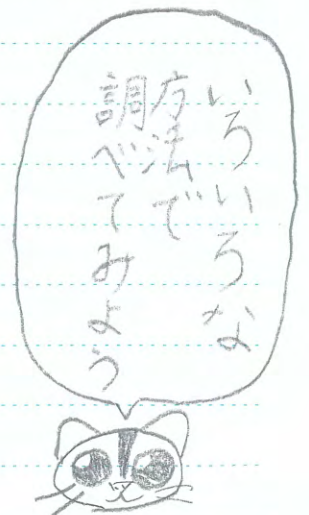 いろいろな
方法で
調べてみよう